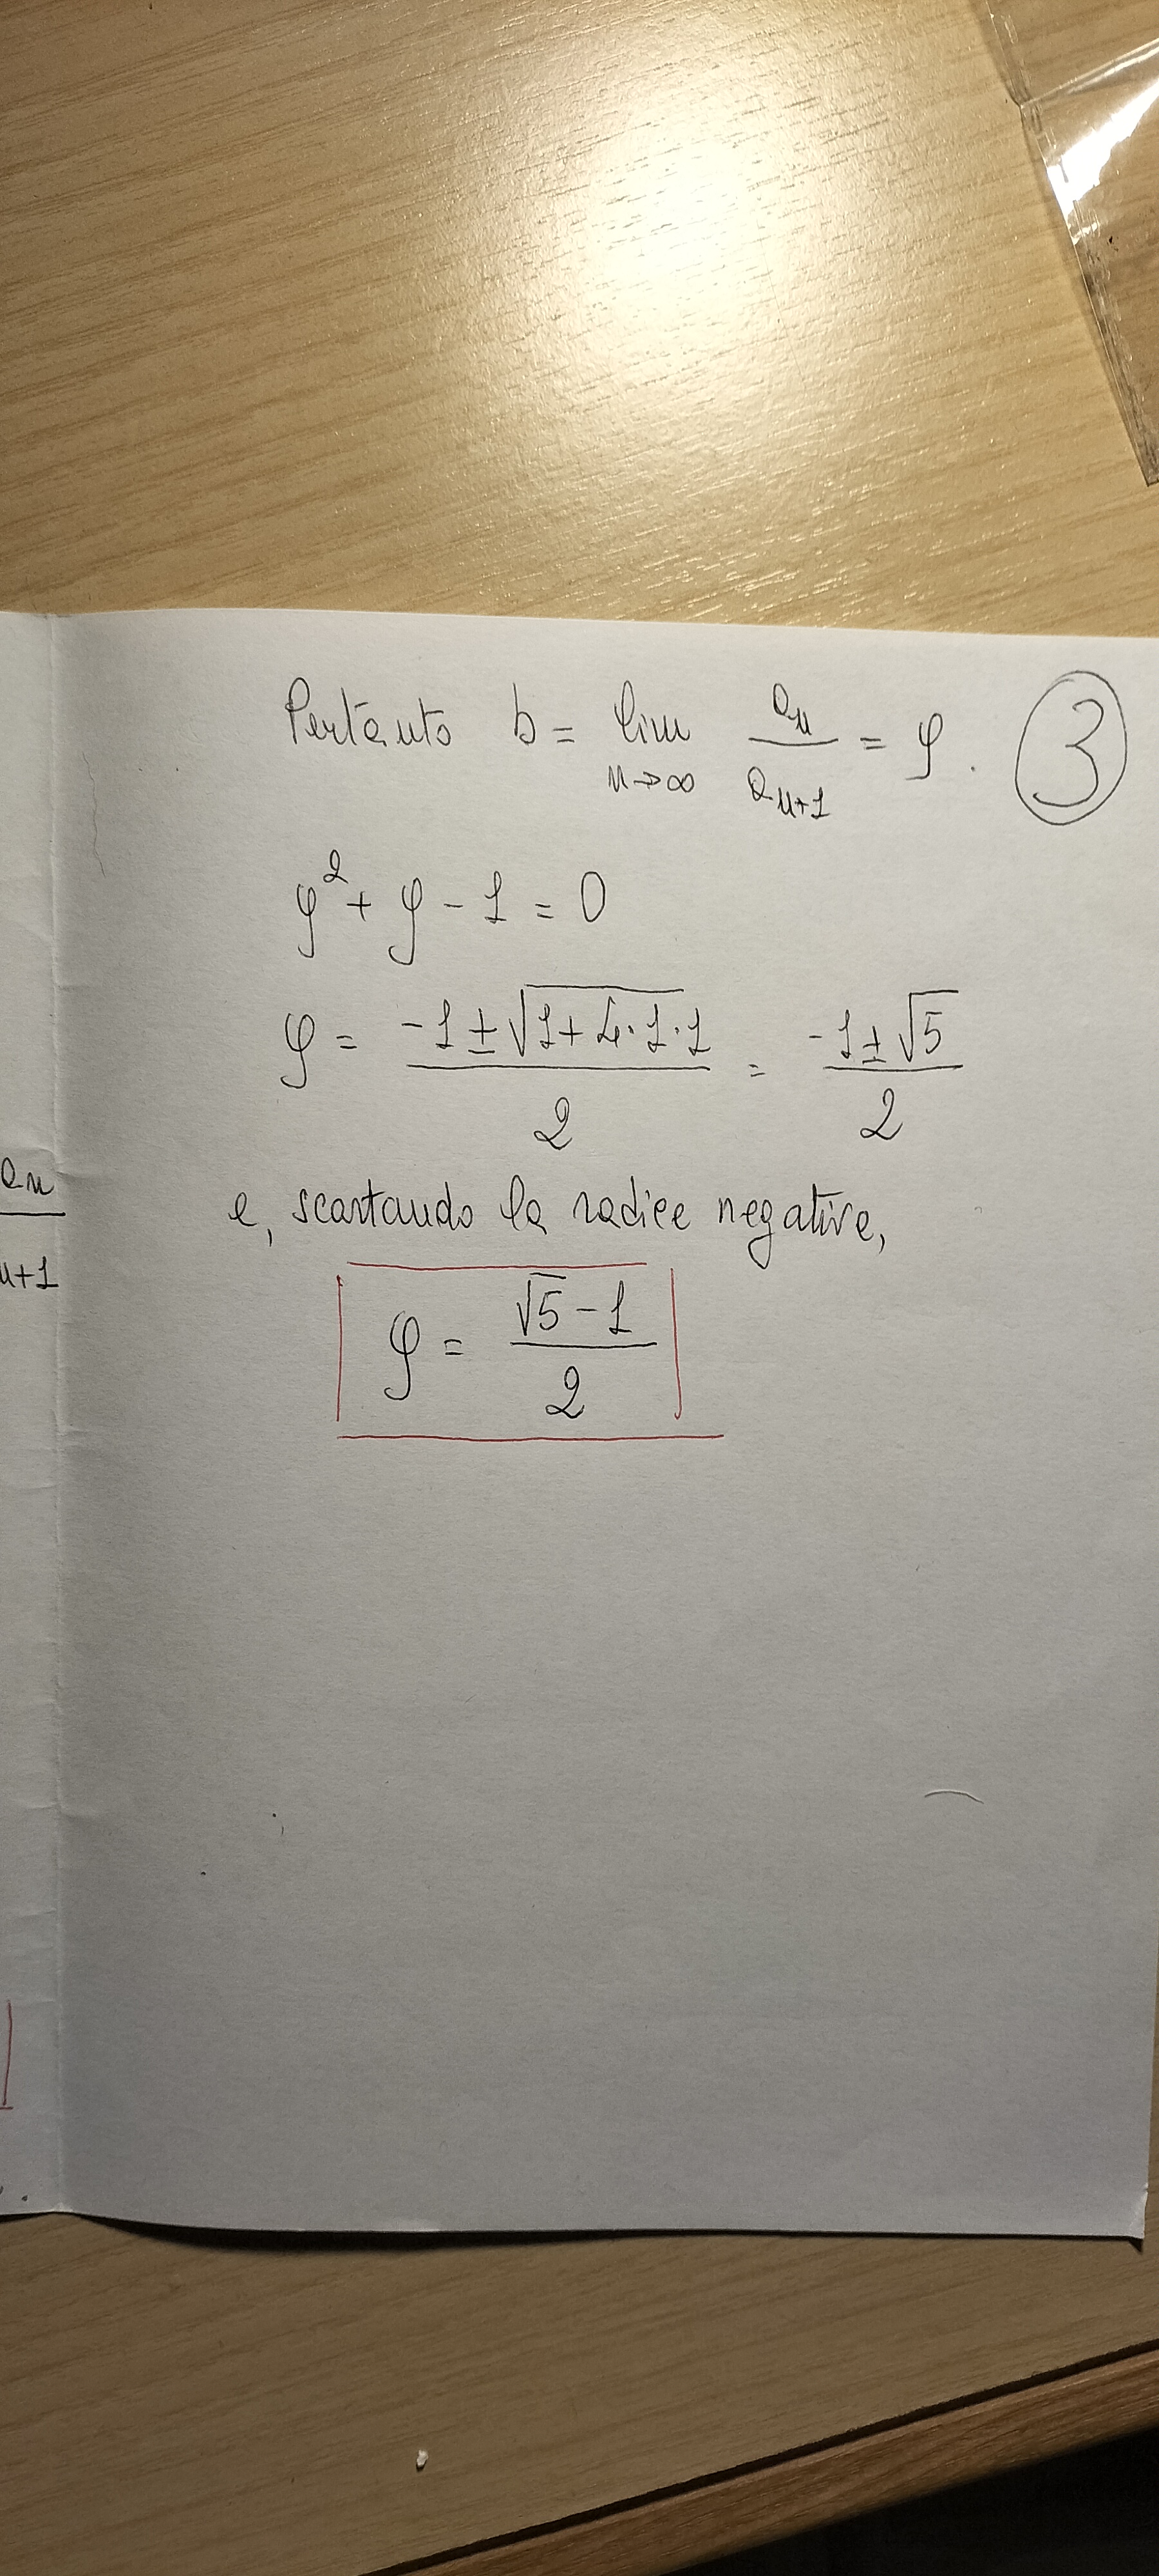 Pertanto b = lim n→∞ a_n / a_{n+1} = φ. 3
φ² + φ - 1 = 0
φ = (-1 ± √(1+4·1·1)) / 2 = (-1 ± √5) / 2
e, scartando la radice negativa,
φ = (√5 - 1) / 2
a_n
n+1